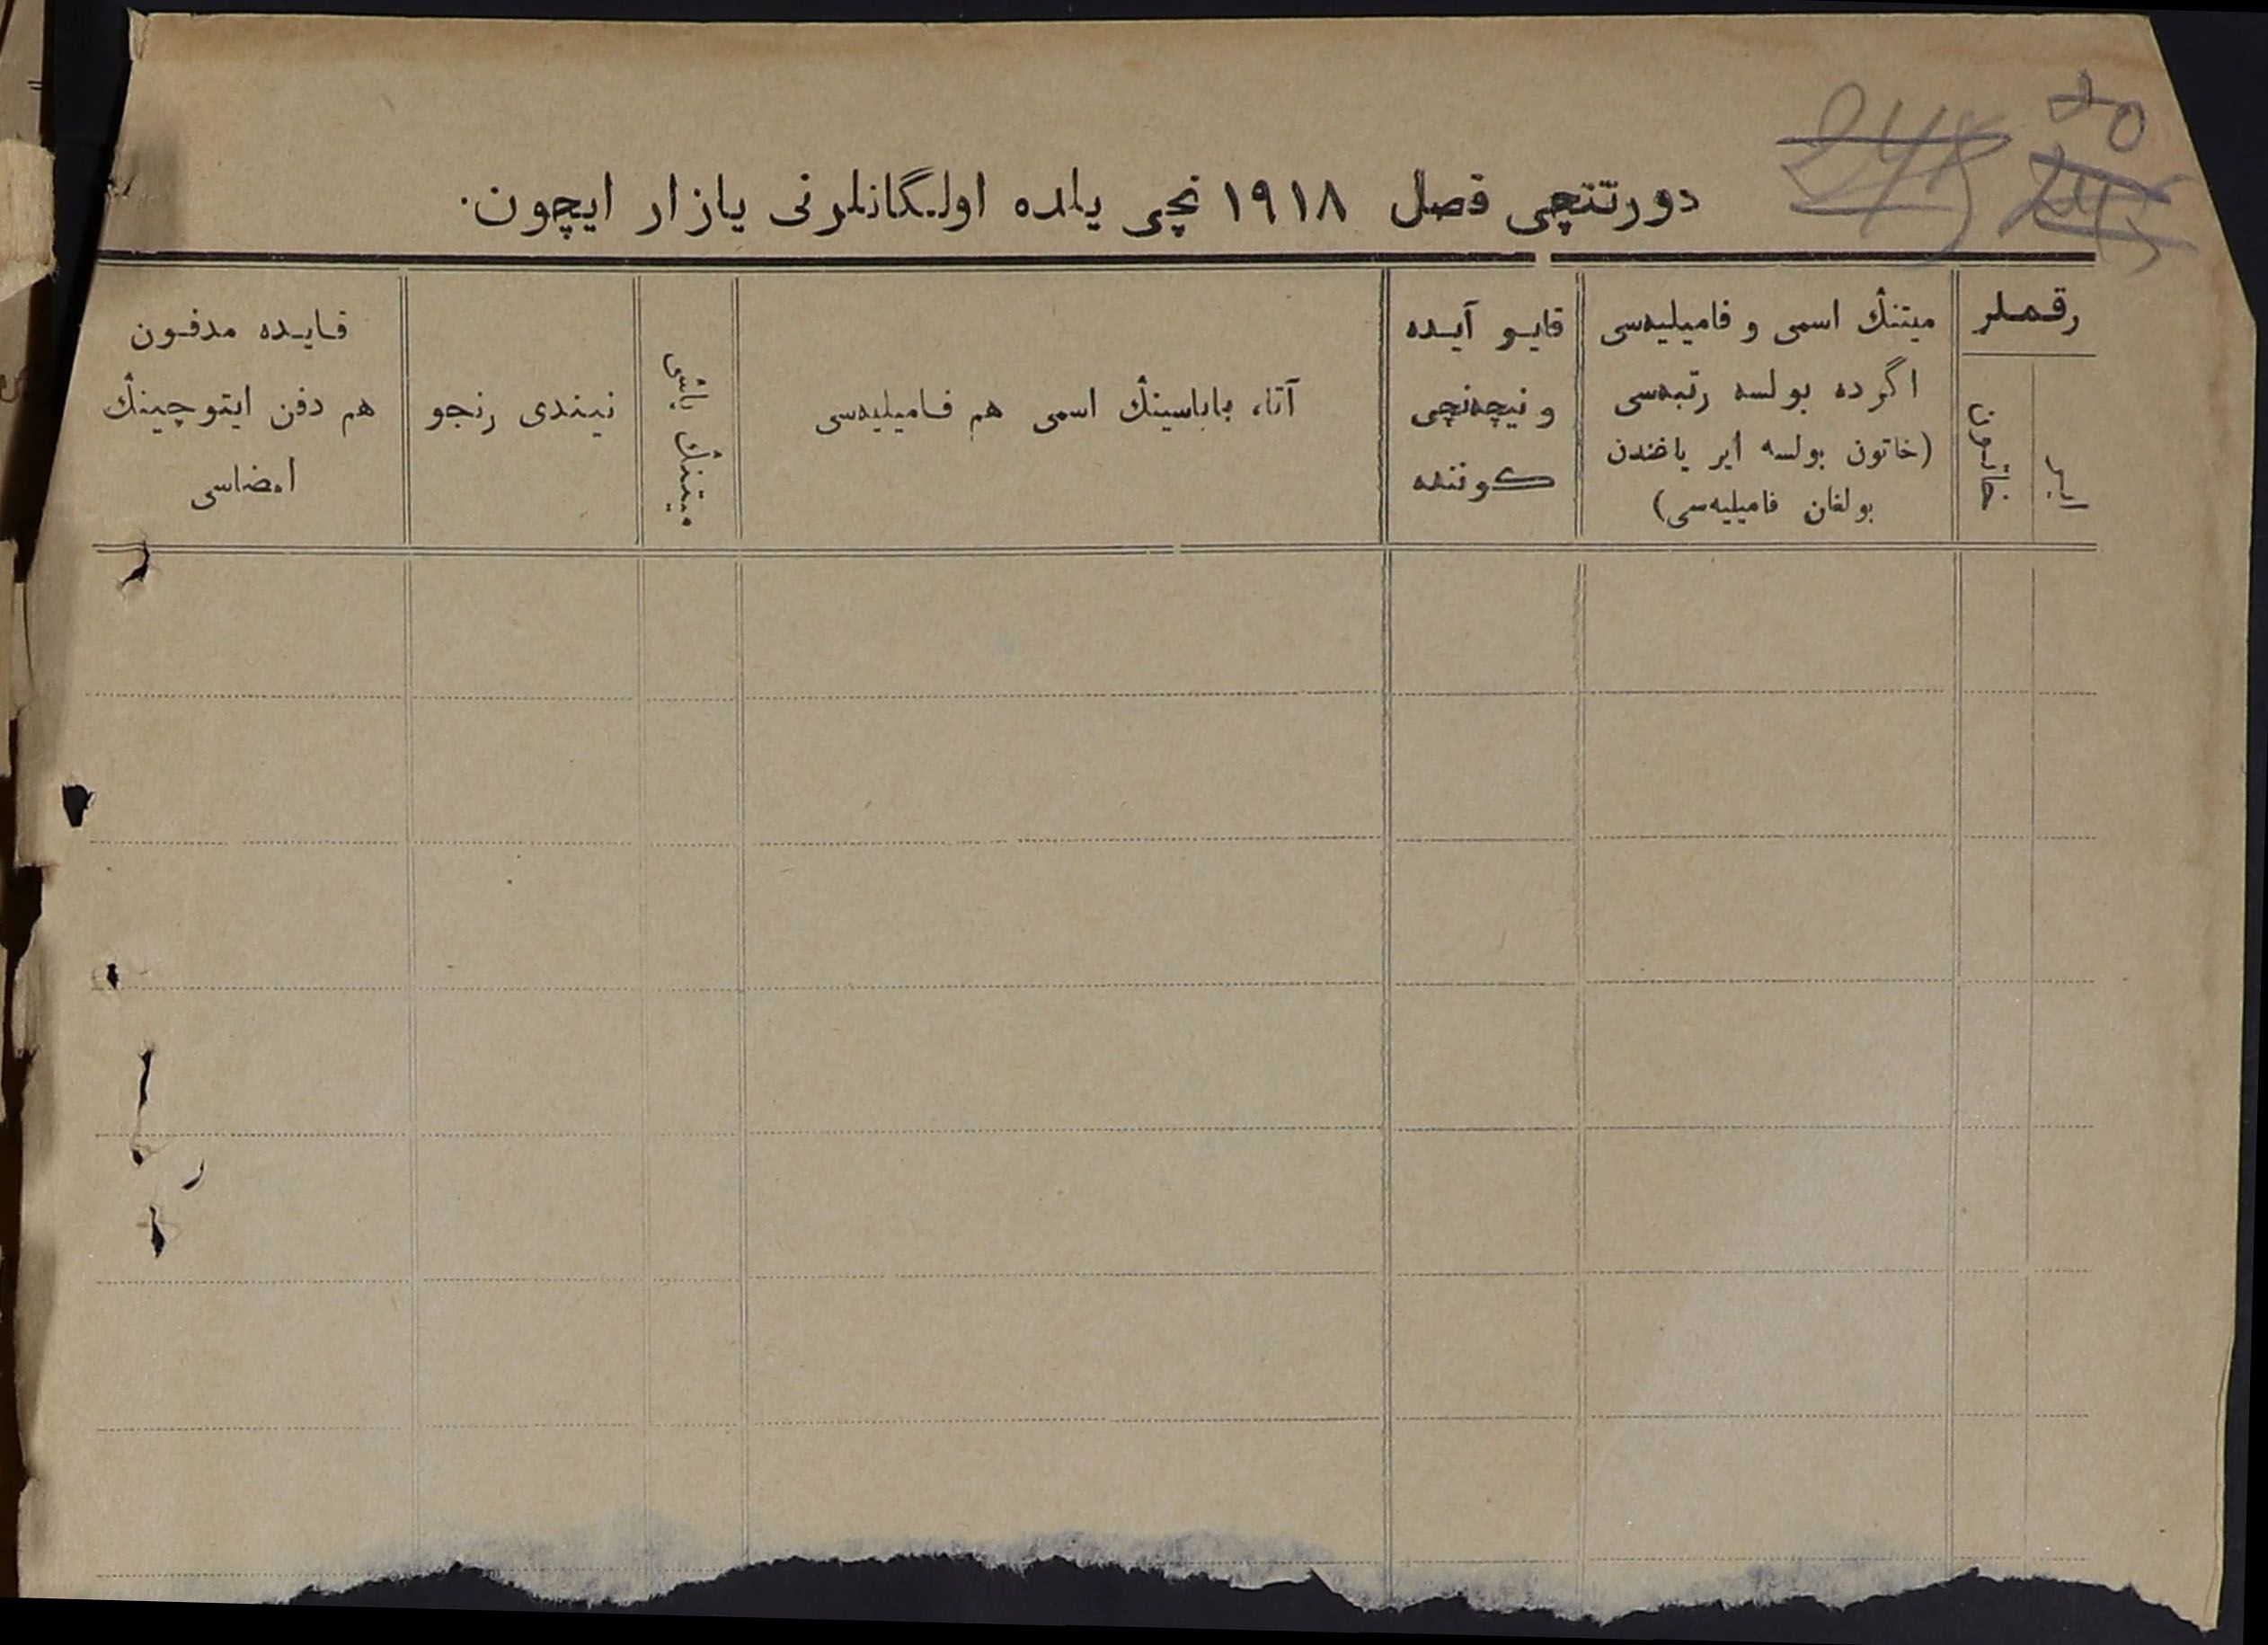 20
245 245
دورتنچی فصل ١٩١٨ نچی یلده اولگانلرنی یازار ایچون.
رقملر
ایر
خاتون
میتنڭ اسمی و فامیلیه‌سی
اگرده بولسه رتبه‌سی
(خاتون بولسه ایر یاغندن
بولغان فامیلیه‌سی)
قایو آیده
و نیچه‌نچی
کوننده
آتا، باباسینڭ اسمی هم فامیلیه‌سی
میتنڭ یاشی
نیندی رنجو
قایده مدفون
هم دفن ایتوچینڭ
امضاسی